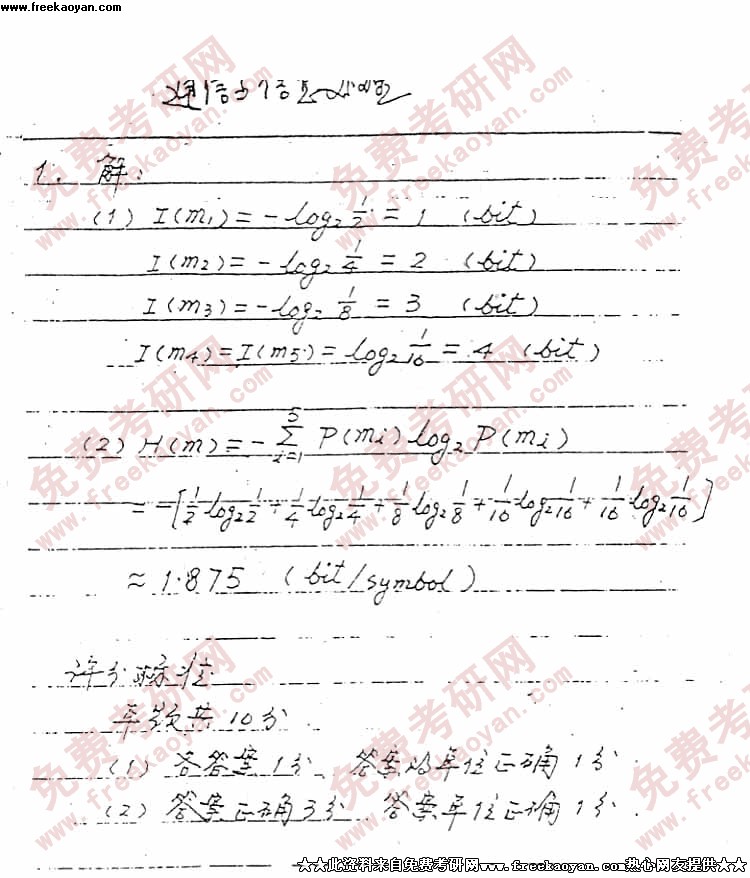 www.freekaoyan.com
通信与信息处理
1. 解:
(1) I(m₁) = -log₂ 1/2 = 1 (bit)
I(m₂) = -log₂ 1/4 = 2 (bit)
I(m₃) = -log₂ 1/8 = 3 (bit)
I(m₄) = I(m₅) = log₂ 1/16 = 4 (bit)
(2) H(m) = -∑_{i=1}^{5} P(mᵢ) log₂ P(mᵢ)
= -[1/2 log₂ 1/2 + 1/4 log₂ 1/4 + 1/8 log₂ 1/8 + 1/16 log₂ 1/16 + 1/16 log₂ 1/16]
≈ 1.875 (bit/symbol)
评分标准
本题共10分
(1) 各答案1分 答案的单位正确1分.
(2) 答案正确3分 答案单位正确1分.
★★此资料来自免费考研网www.freekaoyan.com热心网友提供★★
免费考研网
www.freekaoyan.com